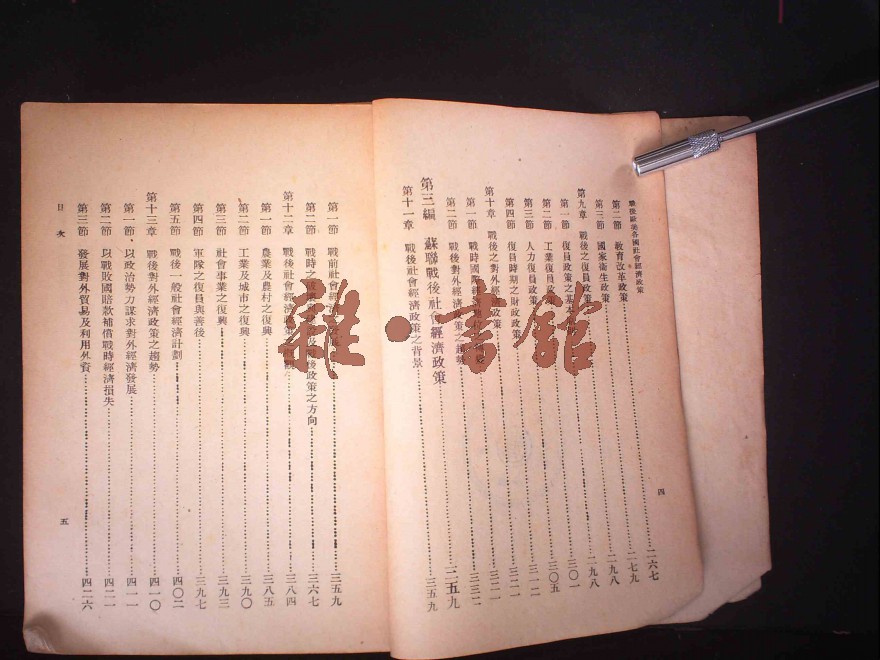 戰後歐美各國社會經濟政策
四
第二節 教育改革政策 二六七
第三節 國家衛生政策 二七九
第九章 戰後之復員政策 二九八
第一節 復員政策之基本 二九八
第二節 工業復員政策 三〇一
第三節 人力復員政策 三〇五
第四節 復員時期之財政政策 三一二
第十章 戰後之對外經濟政策 三二一
第一節 戰時國際經濟 三二一
第二節 戰後對外經濟政策之趨勢 三三二
第三編 蘇聯戰後社會經濟政策 三五九
第十一章 戰後社會經濟政策之背景 三五九
第一節 戰前社會經濟 三五九
第二節 戰時之 後政策之方向 三六七
第十二章 戰後社會經濟政策 三八四
第一節 農業及農村之復興 三八五
第二節 工業及城市之復興 三九〇
第三節 社會事業之復興 三九三
第四節 軍隊之復員與善後 三九七
第五節 戰後一般社會經濟計劃 四〇二
第十三章 戰後對外經濟政策之趨勢 四一〇
第一節 以政治勢力謀求對外經濟發展 四一一
第二節 以戰敗國賠款補償戰時經濟損失 四二一
第三節 發展對外貿易及利用外資 四二六
目次
五
雜·書館